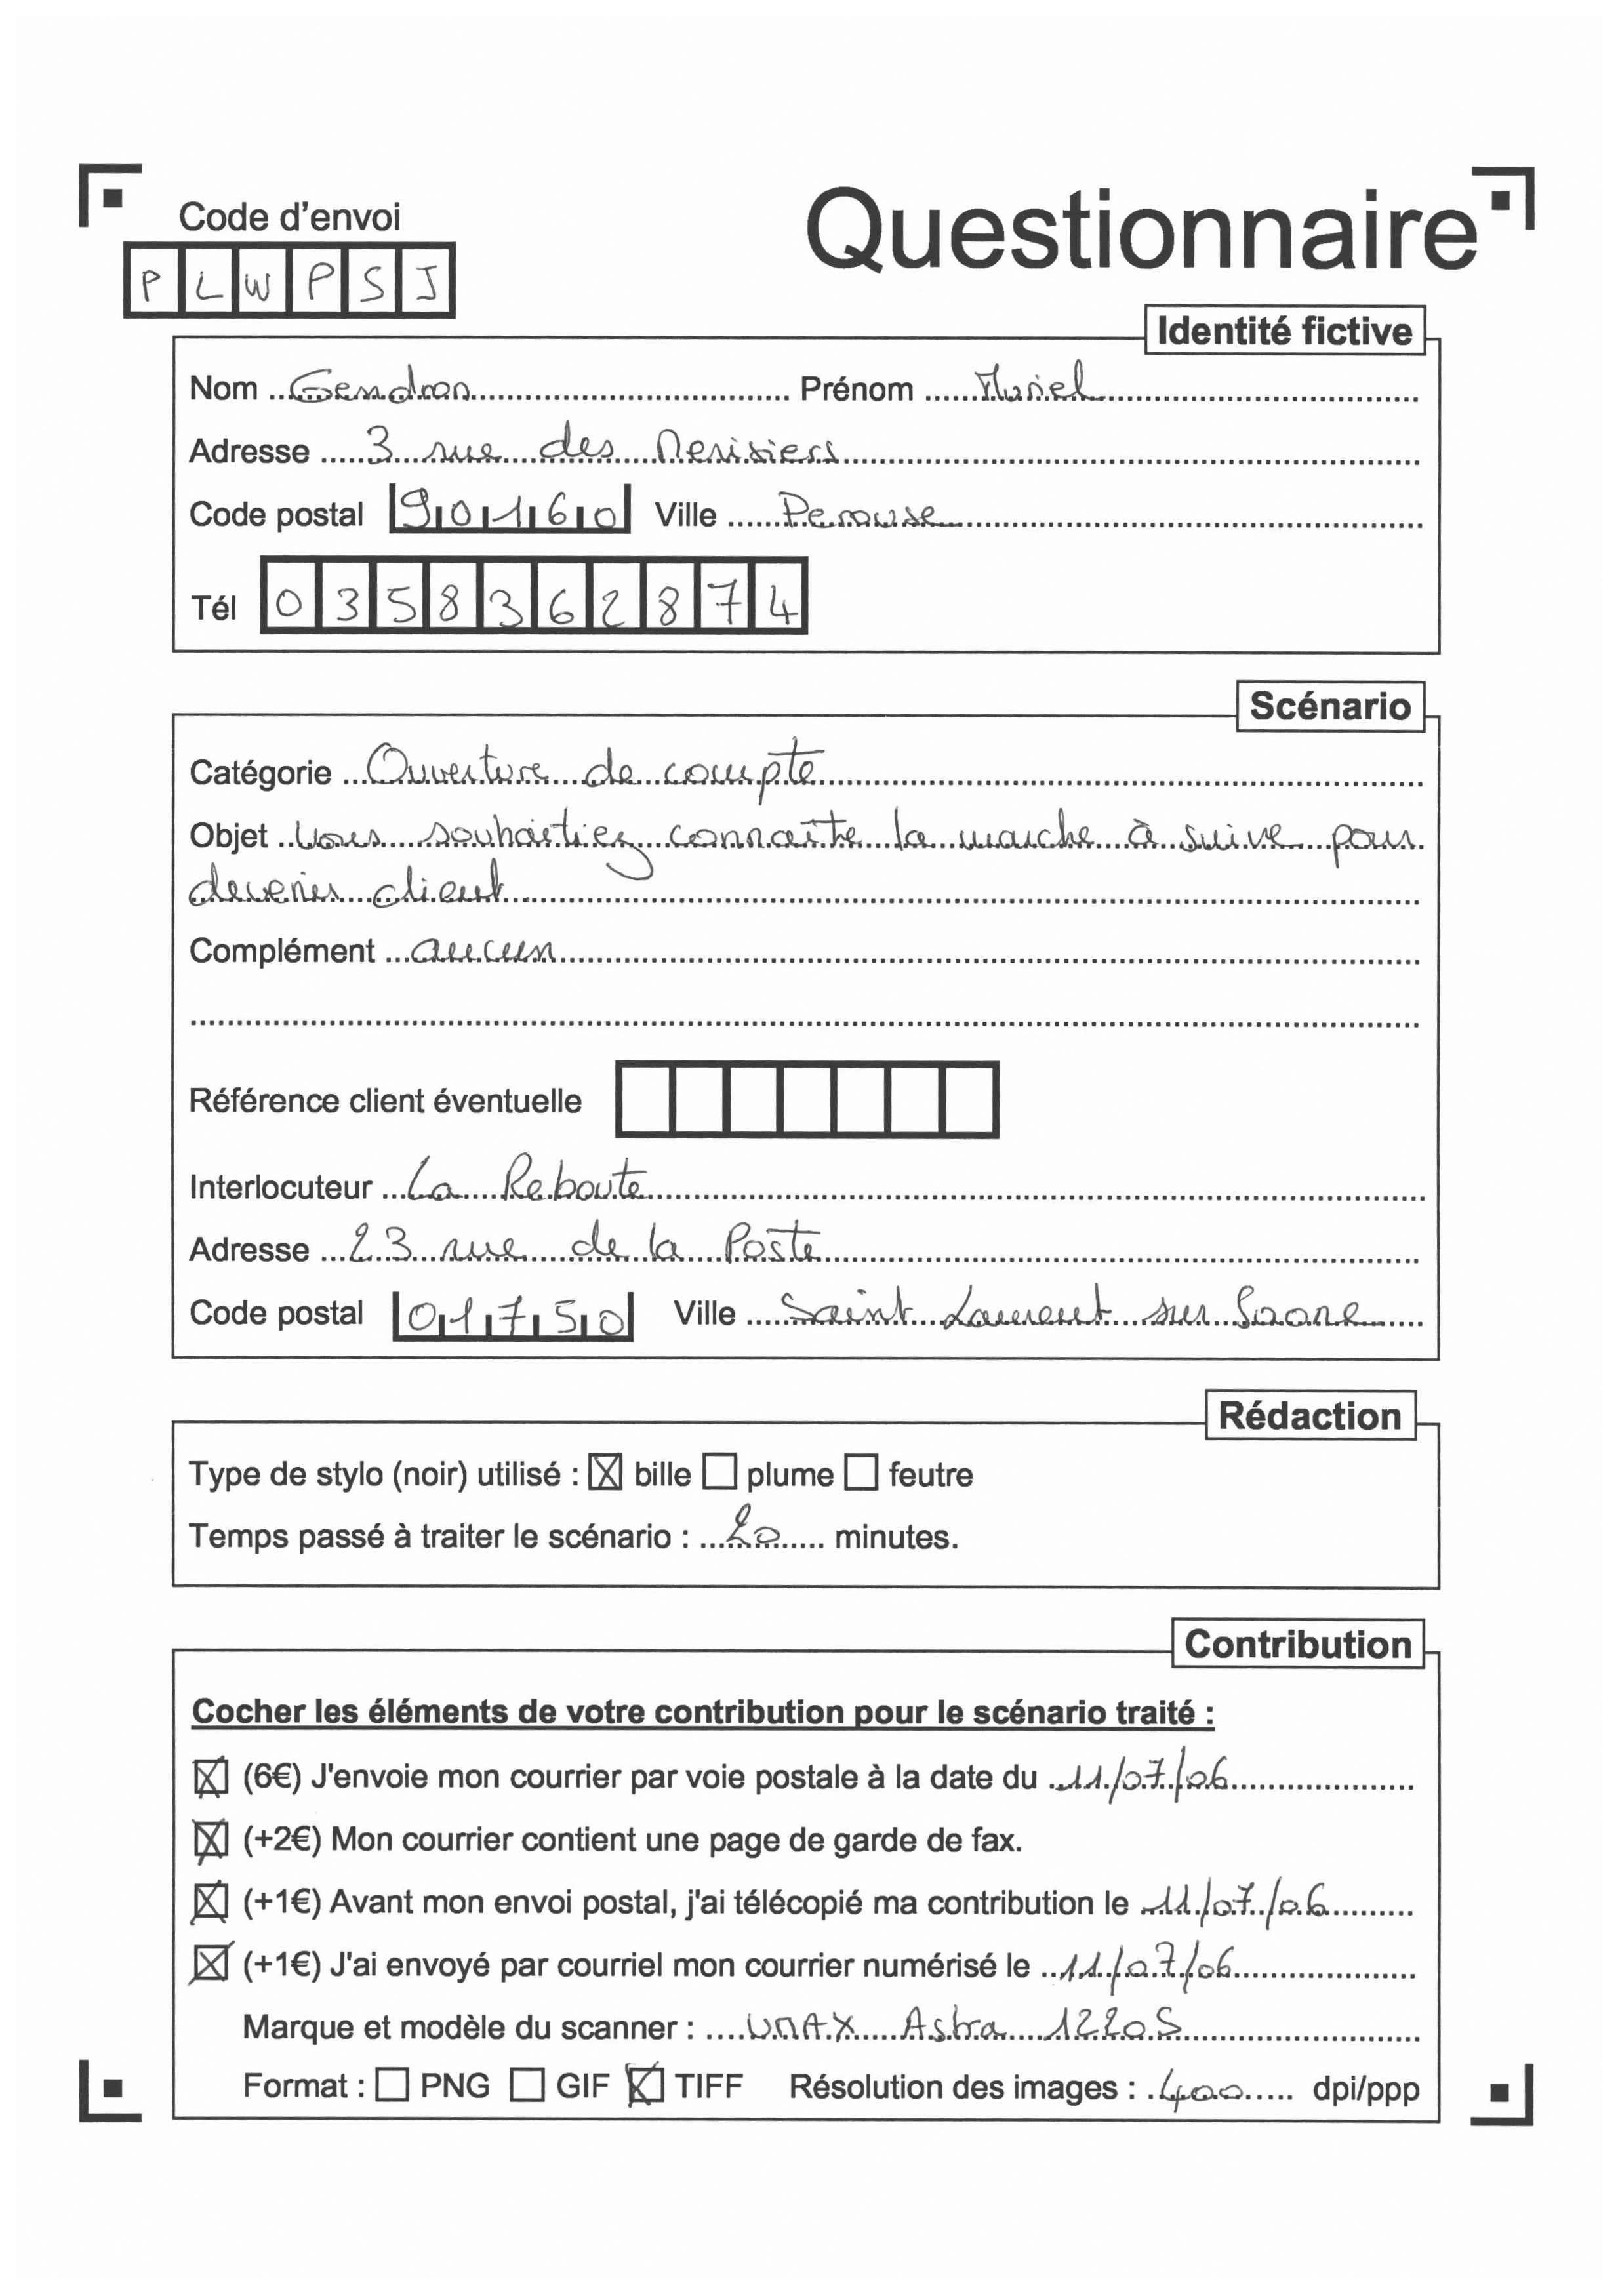 Questionnaire
Code d'envoi
PLWPSJ
Identité fictive
Nom Gendron Prénom Muriel
Adresse 3 rue des Merisiers
Code postal 90160 Ville Perouse
Tél 0358362874
Scénario
Catégorie Ouverture de compte
Objet Vous souhaitiez connaître la marche à suivre pour
devenir client
Complément aucun
Référence client éventuelle
Interlocuteur La Reboute
Adresse 23 rue de la Poste
Code postal 01750 Ville Saint Laurent sur Saone
Rédaction
Type de stylo (noir) utilisé : ☒ bille ☐ plume ☐ feutre
Temps passé à traiter le scénario : 20 minutes.
Contribution
Cocher les éléments de votre contribution pour le scénario traité :
☒ (6€) J'envoie mon courrier par voie postale à la date du 11/07/06
☒ (+2€) Mon courrier contient une page de garde de fax.
☒ (+1€) Avant mon envoi postal, j'ai télécopié ma contribution le 11/07/06
☒ (+1€) J'ai envoyé par courriel mon courrier numérisé le 11/07/06
Marque et modèle du scanner : UMAX Astra 1220S
Format : ☐ PNG ☐ GIF ☒ TIFF Résolution des images : 400 dpi/ppp